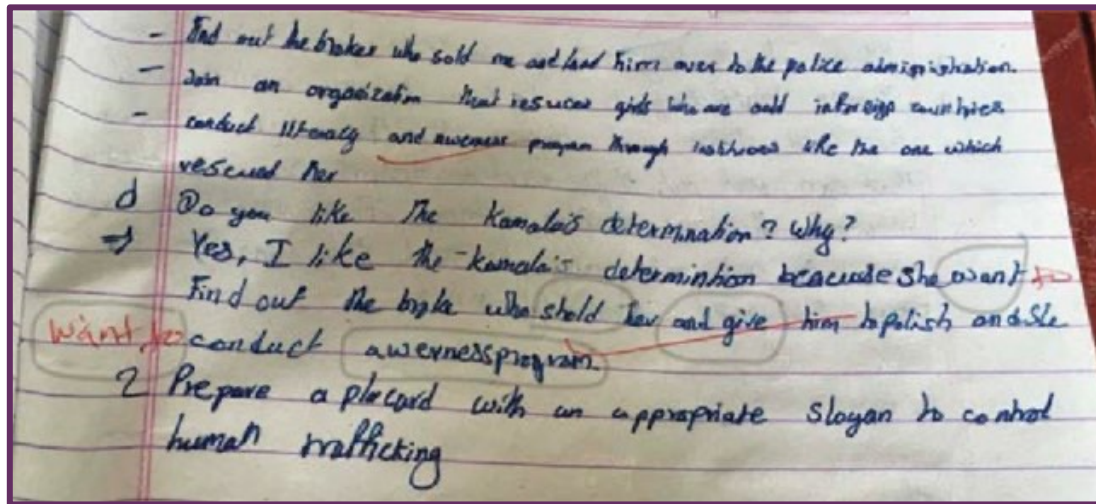 - Find out the broker who sold me and hand him over to the police administration.
- Join an organization that resuces girls who are sold in foreign countries
- conduct literacy and awerness program through instituions like the one which
rescued her
d Do you like the Kamala's determination? Why?
⇒ Yes, I like the Kamala's determintion beacuse she want to
Find out the broke who shold her and give him to polish and she
want to conduct awernessprogram.
2 Prepare a placard with an appropriate slogan to control
human trafficking